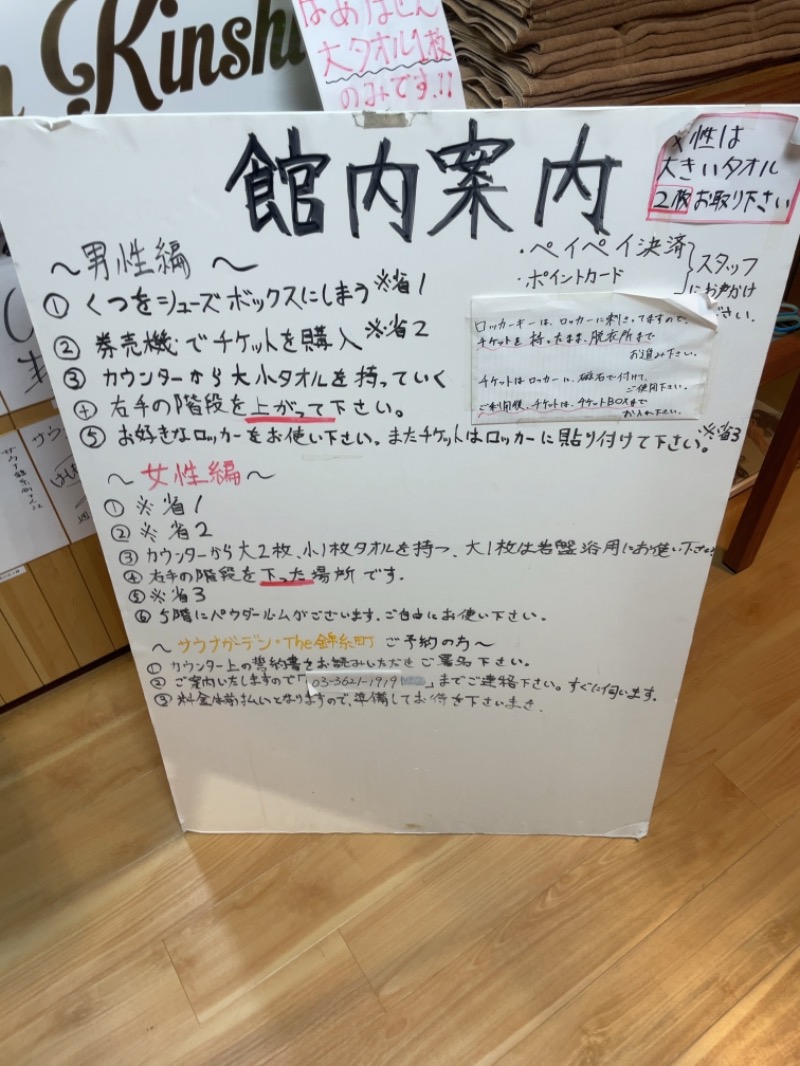 Kinshi
大タオル1枚
のみです!!
館内案内
性は
大きいタオル
2枚お取り下さい
・ペイペイ決済
・ポイントカード
スタッフ
にお声かけ
ださい。
〜男性編〜
① くつをシューズボックスにしまう ※省1
② 券売機でチケットを購入 ※省2
③ カウンターから大小タオルを持っていく
④ 右手の階段を上がって下さい。
⑤ お好きなロッカーをお使い下さい。またチケットはロッカーに貼り付けて下さい。※省3
ロッカーキーは、ロッカーに刺さってますので、
チケットを持ったまま、脱衣所まで
お進み下さい。
チケットはロッカーに、磁石で付けて、
ご使用下さい。
ご利用後、チケットは、チケットBOXまで
お入れ下さい。
〜女性編〜
① ※省1
② ※省2
③ カウンターから大2枚、小1枚タオルを持つ、大1枚は岩盤浴用にお使い下さい
④ 右手の階段を下った場所です。
⑤ ※省3
⑥ 5階にパウダールームがございます。ご自由にお使い下さい。
〜サウナガーデン・The錦糸町 ご予約の方〜
① カウンター上の誓約書をお読みいただきご署名下さい。
② ご案内いたしますので「03-3621-1919」までご連絡下さい。すぐに伺います。
③ 料金は前払いとなりますので、準備してお待ち下さいませ.